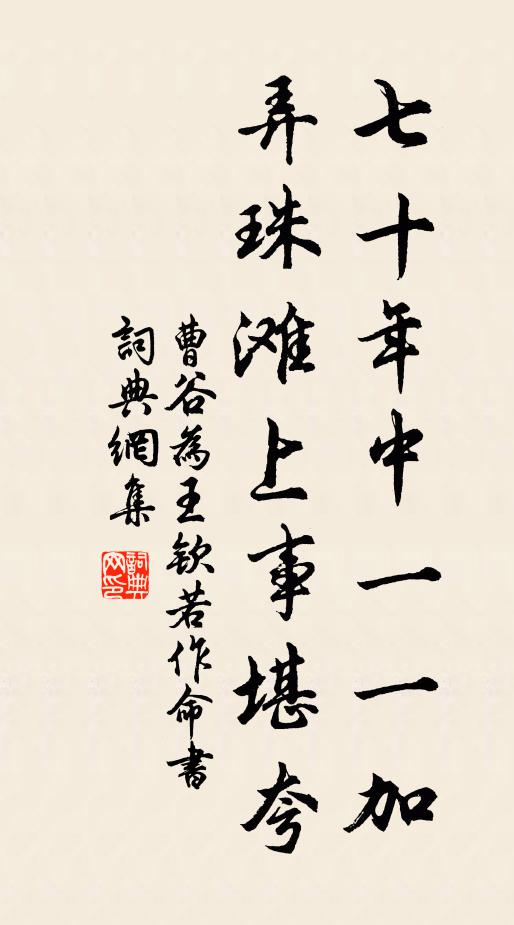 七十年中一一加
弄珠滩上事堪夸
曹谷為王欽若作命書
詞典網集
詞典网印